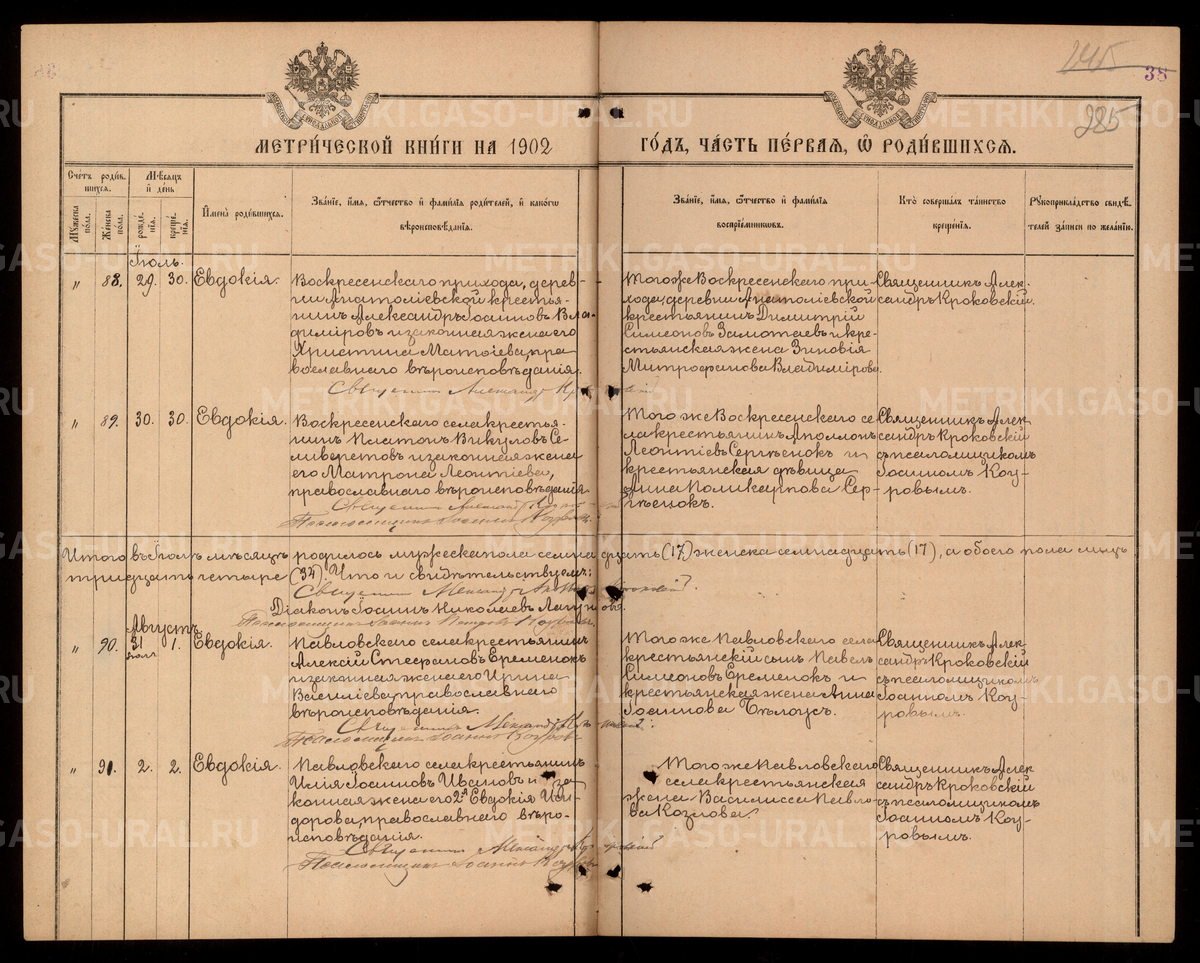 245
38
285
МЕТРИ́ЧЕСКОЙ КНИ́ГИ НА 1902
ГО́ДЪ, ЧА́СТЬ ПЕ́РВАЯ, Ѽ РОДИ́ВШИХСЯ.
Счётъ роди́вшихся.
Му́жеска по́ла.
Же́нска по́ла.
Мѣ́сяцъ и де́нь
рожде́нія.
креще́нія.
И҆мена̀ роди́вшихся.
Зва́ніе, и҆́мя, ѻ҆́тчество и҆ фами́лія роди́телей, и҆ како́гѡ вѣроисповѣ́данія.
Зва́ніе, и҆́мя, ѻ҆́тчество и҆ фами́лія воспріе́мникѡвъ.
Кто̀ соверша́лъ та́инство креще́нія.
Рꙋкоприкла́дство свидѣ́телей за́писи по жела́нію.
Іюль.
" 88. 29. 30. Евдокія.
Воскресенскаго прихода, дерев-
ни Анатоліевской крестья-
нинъ Александръ Іоанновъ Вла-
диміровъ и законная жена его
Христина Матөіева, пра-
вославнаго вѣроисповѣданія.
Священникъ Александръ Кроковскій
Того же Воскресенскаго при-
хода, деревни Анатоліевской
крестьянинъ Димитрій
Симеоновъ Замотаевъ и кре-
стьянская жена Зиновія
Митрофанова Владимірова.
Священникъ Алек-
сандръ Кроковскій.
" 89. 30. 30. Евдокія.
Воскресенскаго села крестья-
нинъ Платонъ Викуловъ Се-
ливерстовъ и законная жена
его Матрона Леонтіева,
православнаго вѣроисповѣданія.
Священникъ Александръ
Псаломщикъ Іоаннъ Коуровъ.
Того же Воскресенскаго се-
ла крестьянинъ Аполлонъ
Леонтіевъ Сергѣенокъ и
крестьянская дѣвица
Анна Поликарпова Сер-
гѣенокъ.
Священникъ Алек-
сандръ Кроковскій
съ псаломщикомъ
Іоанномъ Коу-
ровымъ.
Итого въ Іюлѣ мѣсяцѣ родилось мужеска пола семнадцать (17) женска семнадцать (17), а обоего пола лицъ
тридцать четыре (34). Что и свидѣтельствуемъ:
Священникъ Александръ Кроковскій.
Діаконъ Іоаннъ Николаевъ
Псаломщикъ Іоаннъ Петровъ Коуровъ.
Августъ.
" 90. 31 Іюля 1. Евдокія.
Павловскаго села крестьянинъ
Алексій Стефановъ Еременокъ
и законная жена его Ирина
Василіева, православнаго
вѣроисповѣданія.
Священникъ Александръ Кроковскій:
Псаломщикъ Іоаннъ Коуровъ
Того же Павловскаго села
крестьянскій сынъ Павелъ
Симеоновъ Еременокъ и
крестьянская жена Анна
Іоаннова Бѣлоусъ.
Священникъ Алек-
сандръ Кроковскій
съ псаломщикомъ
Іоанномъ Коу-
ровымъ.
" 91. 2. 2. Евдокія.
Павловскаго села крестьянинъ
Илія Іоанновъ Ивановъ и за-
конная жена его 2я Евдокія Иси-
дорова, православнаго вѣро-
исповѣданія.
Священникъ Александръ Кроковскій
Псаломщикъ Іоаннъ Коуровъ
Того же Павловскаго
села крестьянская
жена Василисса Павло-
ва Козлова.
Священникъ Алек-
сандръ Кроковскій
съ псаломщикомъ
Іоанномъ Коу-
ровымъ.
METRIKI.GASO-URAL.RU